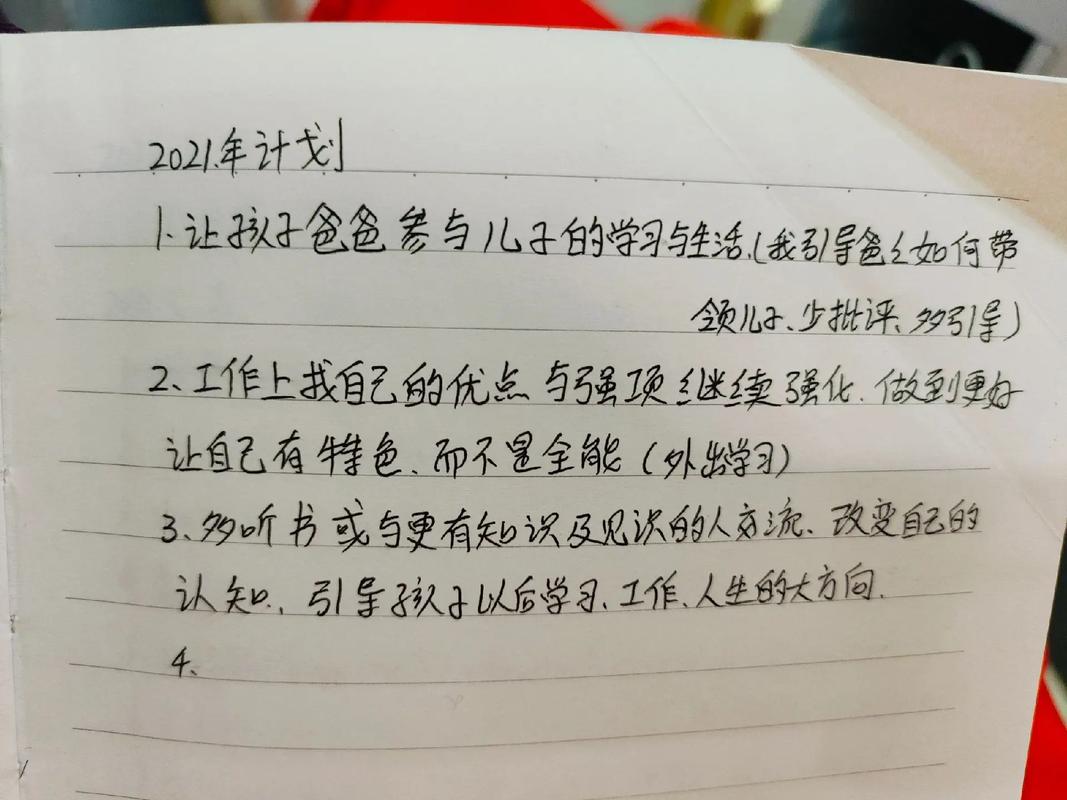 2021.年计划
1.让孩子爸爸参与儿子的学习与生活.(我引导爸爸如何带
领儿子、少批评、多引导)
2、工作上找自己的优点与强项继续强化.做到更好
让自己有特色、而不是全能(外出学习)
3、多听书或与更有知识及见识的人交流、改变自己的
认知.、引导孩子以后学习、工作、人生的大方向.
4、